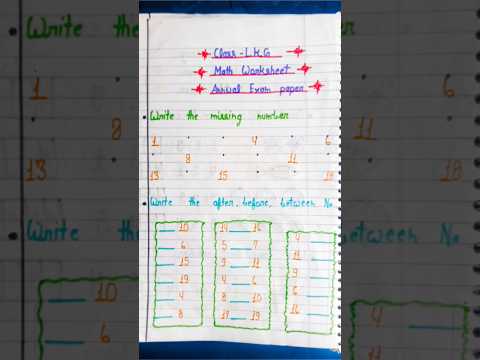 Class - L.K.G
Math Worksheet
Annual Exam paper
Write the missing number
1 . . 4 . 6
. 8 . . 11 .
13 . 15 . . 18
Write the after, before, between No
__ 10 14 __ 16 4 __
__ 6 5 __ 7 11 __
__ 15 9 __ 11 9 __
__ 19 4 __ 6 6 __
__ 4 8 __ 10 16 __
__ 8 17 __ 19